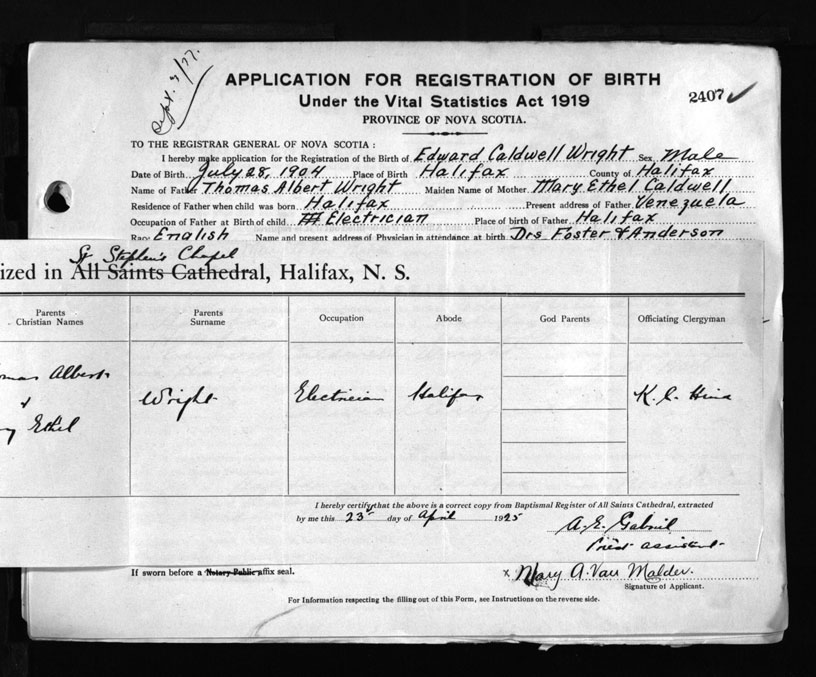 Sept. 7/27.
APPLICATION FOR REGISTRATION OF BIRTH
Under the Vital Statistics Act 1919
2407
PROVINCE OF NOVA SCOTIA.
TO THE REGISTRAR GENERAL OF NOVA SCOTIA :
I hereby make application for the Registration of the Birth of Edward Caldwell Wright Sex Male
Date of Birth July 28, 1904 Place of Birth Halifax County of Halifax
Name of Father Thomas Albert Wright Maiden Name of Mother Mary Ethel Caldwell
Residence of Father when child was born Halifax Present address of Father Venezuela
Occupation of Father at Birth of child Electrician Place of birth of Father Halifax
Race English Name and present address of Physician in attendance at birth Drs Foster & Anderson
St Stephen's Chapel
ized in All Saints Cathedral, Halifax, N. S.
Parents Christian Names Parents Surname Occupation Abode God Parents Officiating Clergyman
omas Albert
& Wright Electrician Halifax K. C. Hind
y Ethel
I hereby certify that the above is a correct copy from Baptismal Register of All Saints Cathedral, extracted
by me this 23rd day of April 1925
A. E. Gabriel
Priest assistant
If sworn before a Notary Public affix seal.
x Mary A. Van Malder.
Signature of Applicant.
For Information respecting the filling out of this Form, see Instructions on the reverse side.